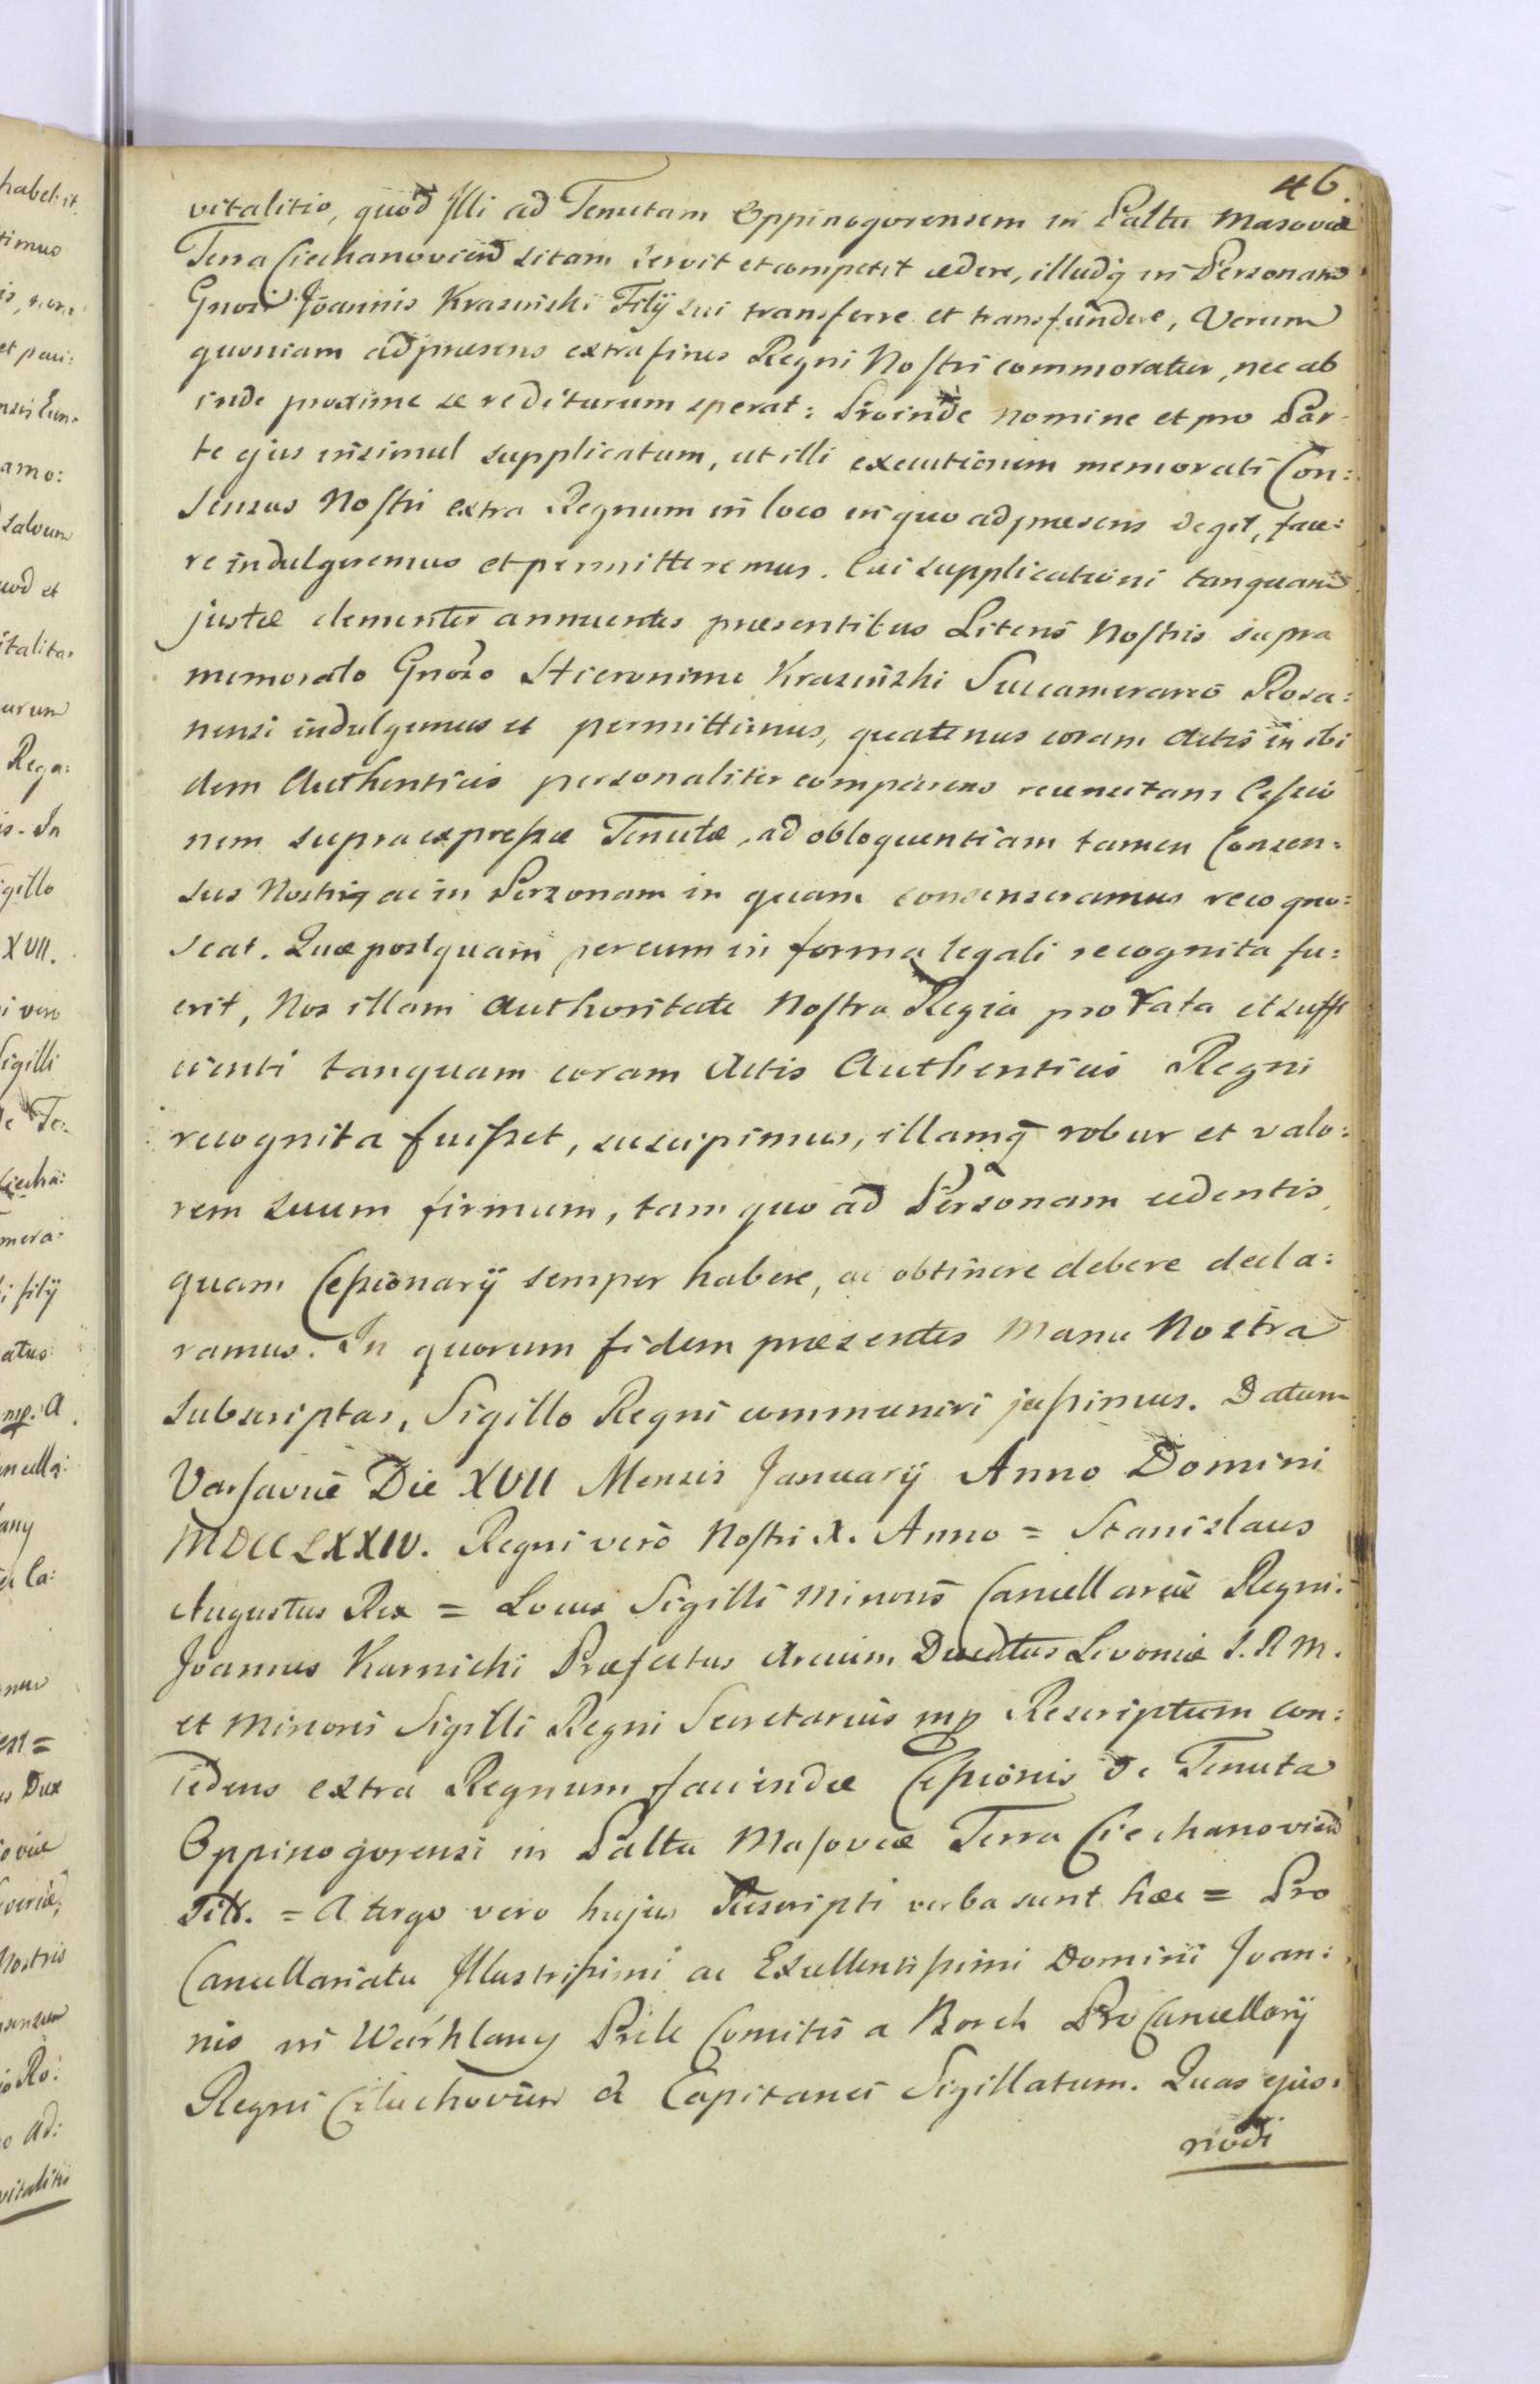 46.
vitalitio, quod Illi ad Tenutam Oppinogorensem in Paltu Masoviæ
Terra Ciechanovien sitam servit et competit cedere, illudq in Personam
Gnosi Joannis Krasinski Filij sui transferre et transfundere, Verum
quoniam ad præsens extra fines Regni Nostri commoratur, nec ab
inde proxime se rediturum sperat: Proinde nomine et pro Par-
te ejus insimul supplicatum, ut illi executionem memorati Con:
sensus Nostri extra Regnum in loco in quo ad præsens deget, face:
re indulgeremus et permitteremus. Cui supplicationi tanquam
justæ clementer annuentes præsentibus Literis Nostris supra
memorato Gnoso Hieronimo Krasinski Succamerario Rosa:
nensi indulgemus et permittimus, quatenus coram Actis in ibi
dem Authenticis personaliter comparens recenutam Cessio
nem supra expressæ Tenutæ, ad obloquentiam tamen Consen:
sus Nostriq ac in Personam in quam consenseramus recogno:
scat. Quæ postquam per eum in forma legali recognita fu:
erit, Nos illam Authoritate Nostra Regia pro rata et suffi
cienti tanquam coram Actis Authenticis Regni
recognita fuisset, suscipimus, illamq robur et valo:
rem suum firmum, tam quo ad Personam cedentis,
quam Cessionarij semper habere, ac obtinere debere decla:
ramus. In quorum fidem præsentes Manu Nostra
subscriptas, Sigillo Regni communiri jussimus. Datum
Varsaviæ Die XVII Mensis Januarij Anno Domini
MDCCLXXIV. Regni vero Nostri X. Anno = Stanislaus
Augustus Rex = Locus Sigilli Minoris Cancellariæ Regni.
Joannes Karnicki Præfectus Arcium Ducatus Livoniæ S. R M.
et Minoris Sigilli Regni Secretarius mp Rescriptum con:
cedens extra Regnum faciendæ Cessionis de Tenuta
Oppinogorensi in Paltu Masoviæ Terra Ciechanovien
Sit. = A tergo vero hujus Rescripti verba sunt hæc = Pro
Cancellariatu Illustrissimi ac Excellentissimi Domini Joan:
nis in Warklany Prele Comitis a Borch Pro Cancellarij
Regni CZluchovien & Capitanei Sigillatum. Quas ejus:
modi